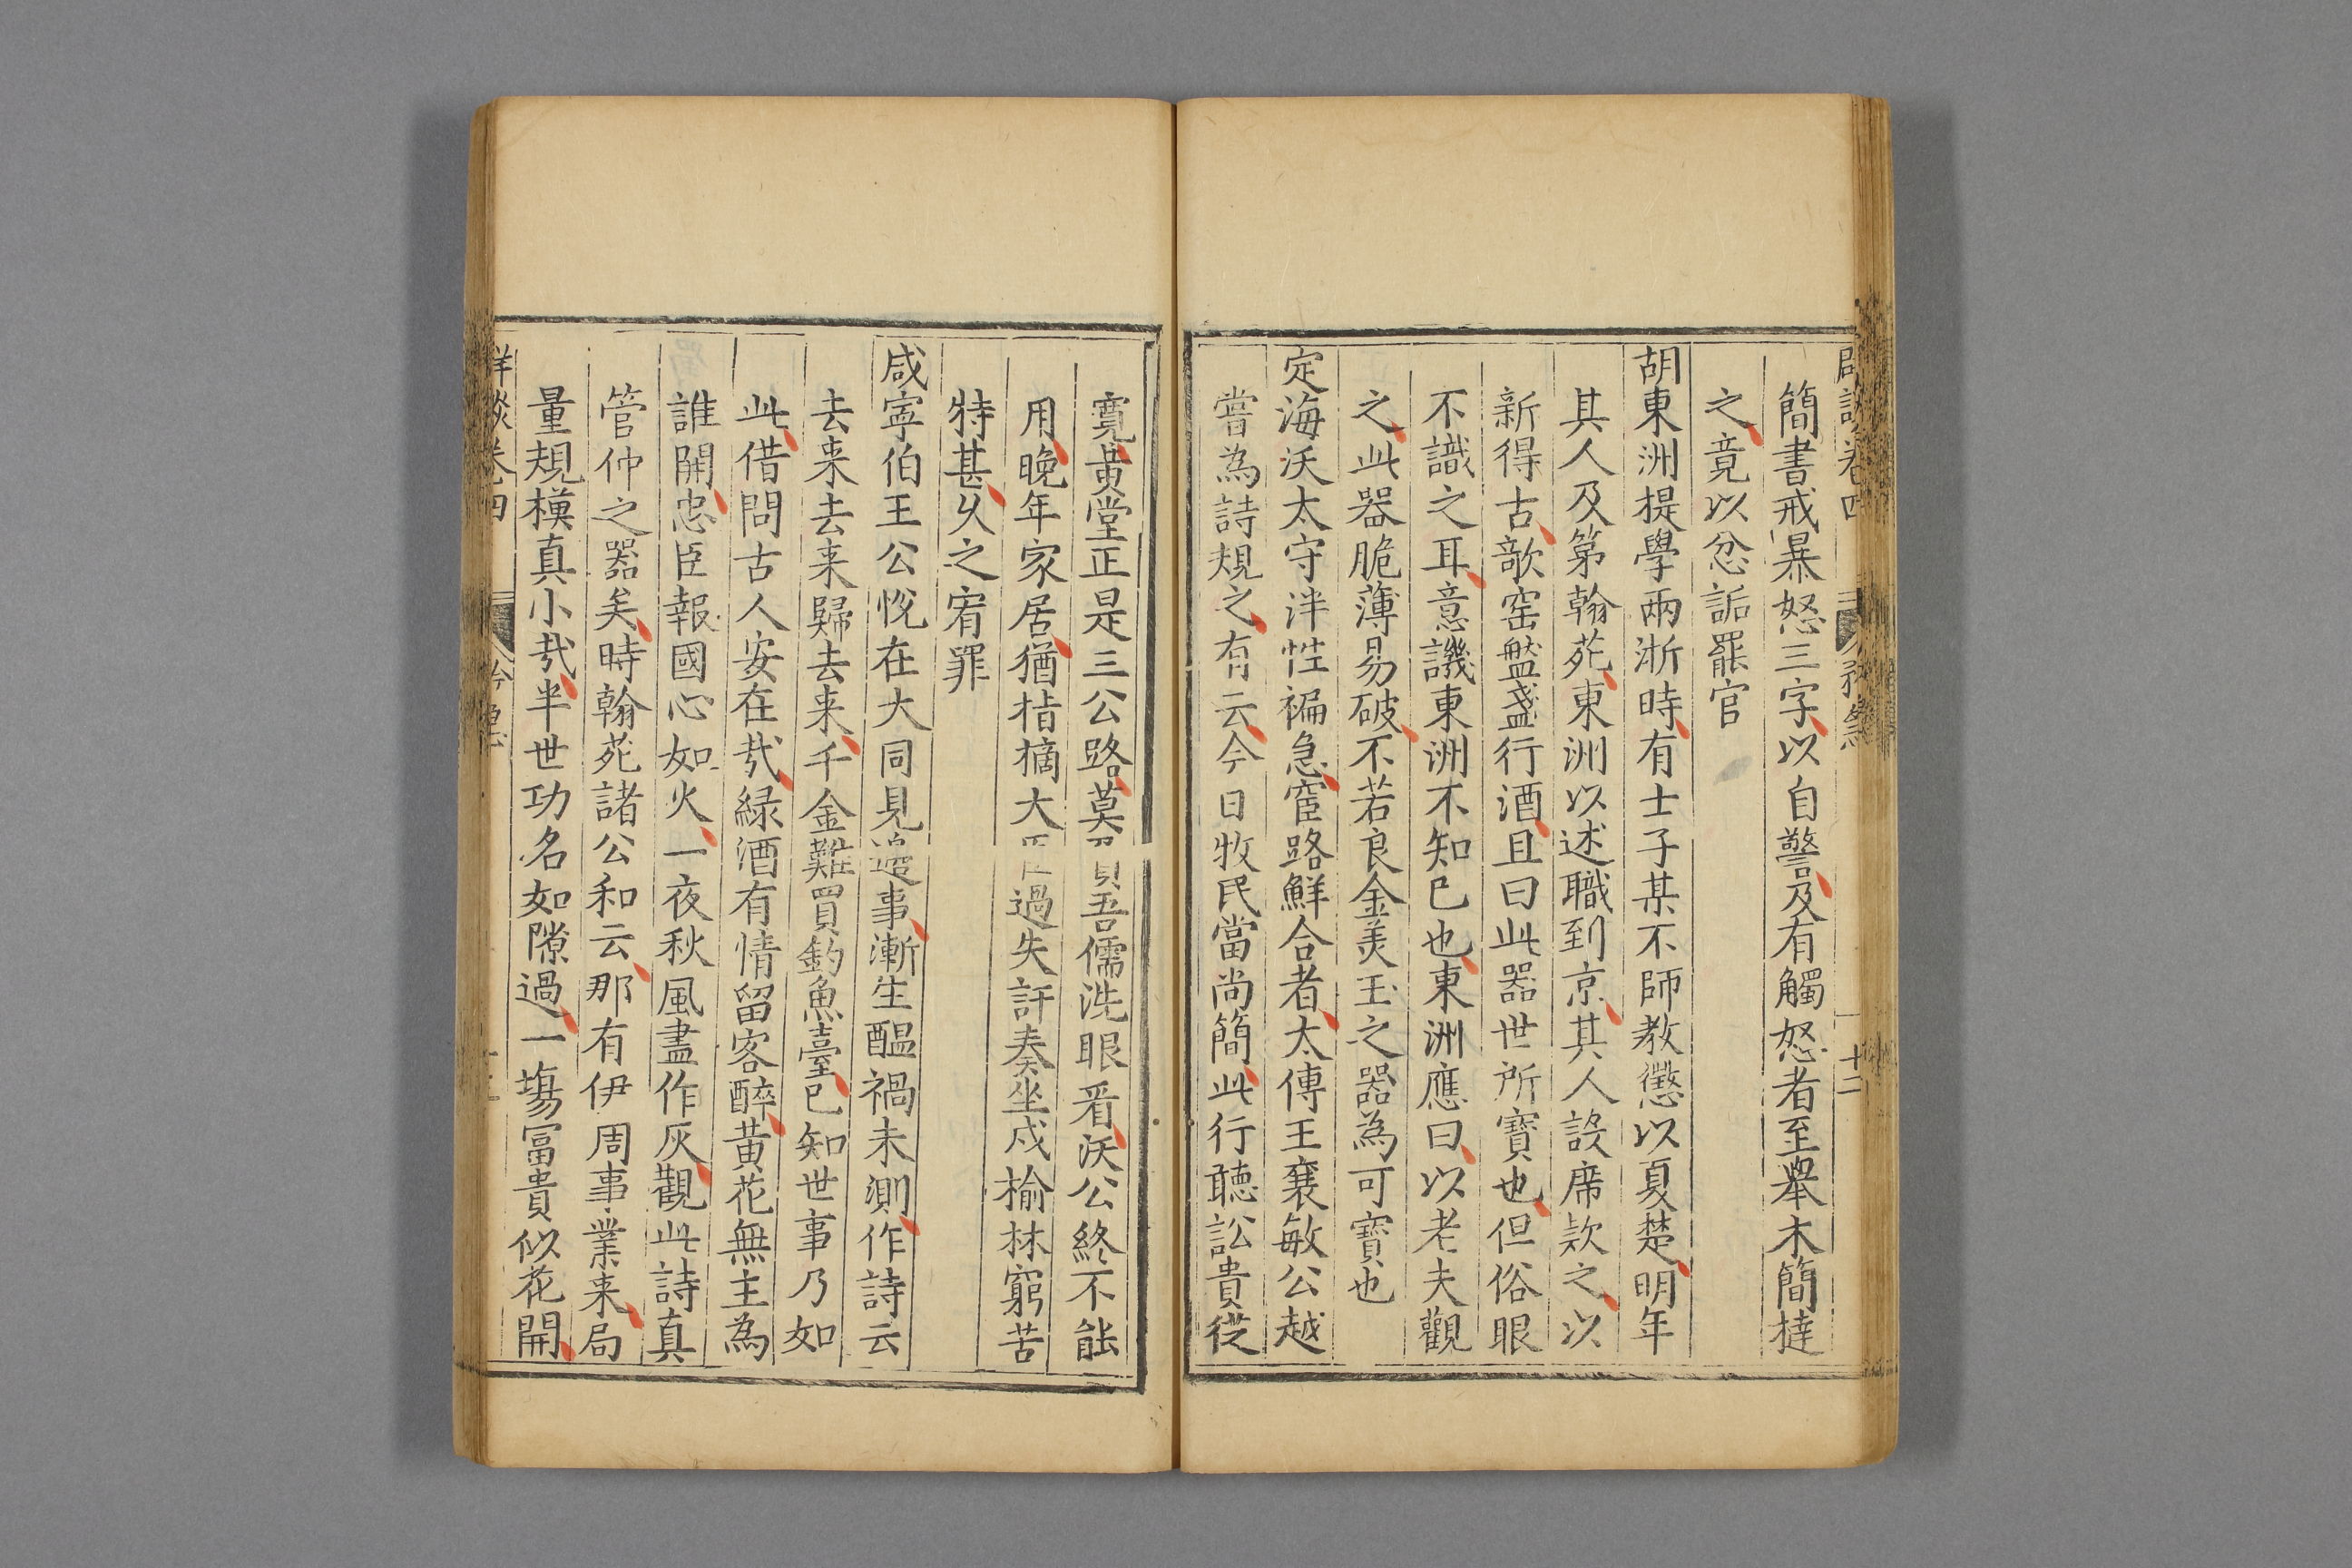 卷四
十二
簡書戒暴怒三字以自警及有觸怒者至舉木簡撻
之竟以忿詬罷官
胡東洲提學兩浙時有士子某不師教懲以夏楚明年
其人及第翰苑東洲以述職到京其人設席欵之以
新得古歙窑盤盞行酒且曰此器世所寶也但俗眼
不識之耳意譏東洲不知已也東洲應曰以老夫觀
之此器脆薄易破不若良金美玉之器為可寶也
定海沃太守泮性褊急宦路鮮合者太傅王襄敏公越
嘗為詩規之有云今日牧民當尚簡此行聽訟貴從
寬黄堂正是三公路莫吾儒洗眼看沃公終不能
用晚年家居猶掯摘大過失訐奏坐戍榆林窮苦
特甚乆之宥罪
咸寜伯王公悅在大同見邉事漸生醖禍未測作詩云
去来去来歸去来千金難買釣魚臺已知世事乃如
此借問古人安在㢤緑酒有情留客醉黄花無主為
誰開忠臣報國心如火一夜秋風盡作灰觀此詩真
管仲之器矣時翰苑諸公和云那有伊周事業来局
量規模真小㢤半世功名如隙過一塲冨貴似花開
卷四